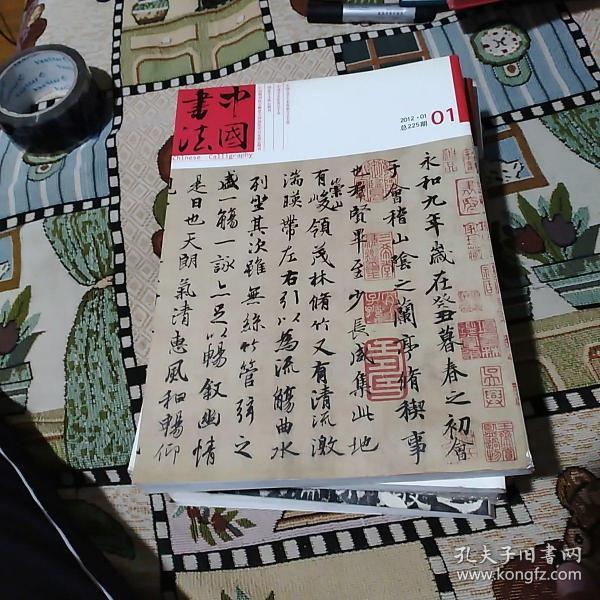 中國
書法
Chinese Calligraphy
2012·01
总225期
01
永和九年歲在癸丑暮春之初會
于會稽山陰之蘭亭脩稧事
也羣賢畢至少長咸集此地
有崇山峻領茂林脩竹又有清流激
湍暎帶左右引以為流觴曲水
列坐其次雖無絲竹管弦之
盛一觴一詠亦足以暢叙幽情
是日也天朗氣清惠風和暢仰
孔夫子旧书网
www.kongfz.com